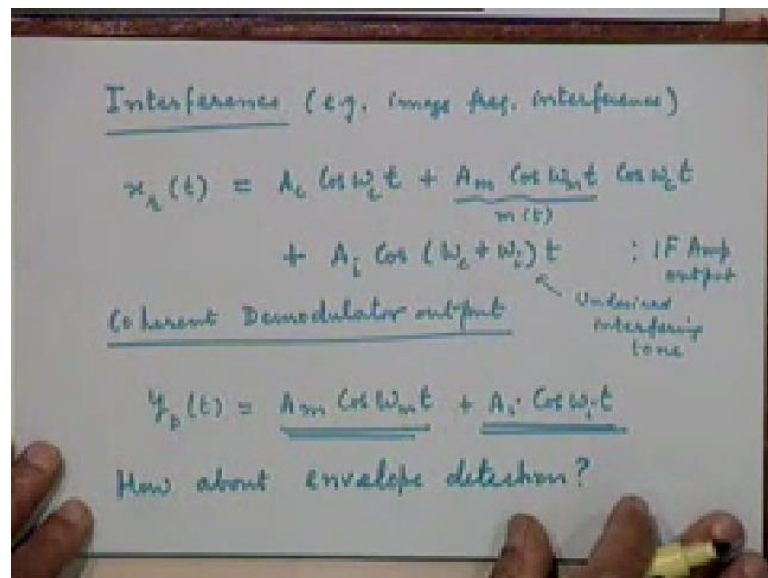 Interference (e.g. image freq. interference)
x_r(t) = A_c Cos ω_c t + A_m Cos ω_m t Cos ω_c t
m(t)
+ A_i Cos (ω_c + ω_i) t : IF Amp
output
Undesired
interfering
tone
Coherent Demodulator output
y_D(t) = A_m Cos ω_m t + A_i Cos ω_i t
How about envelope detection?